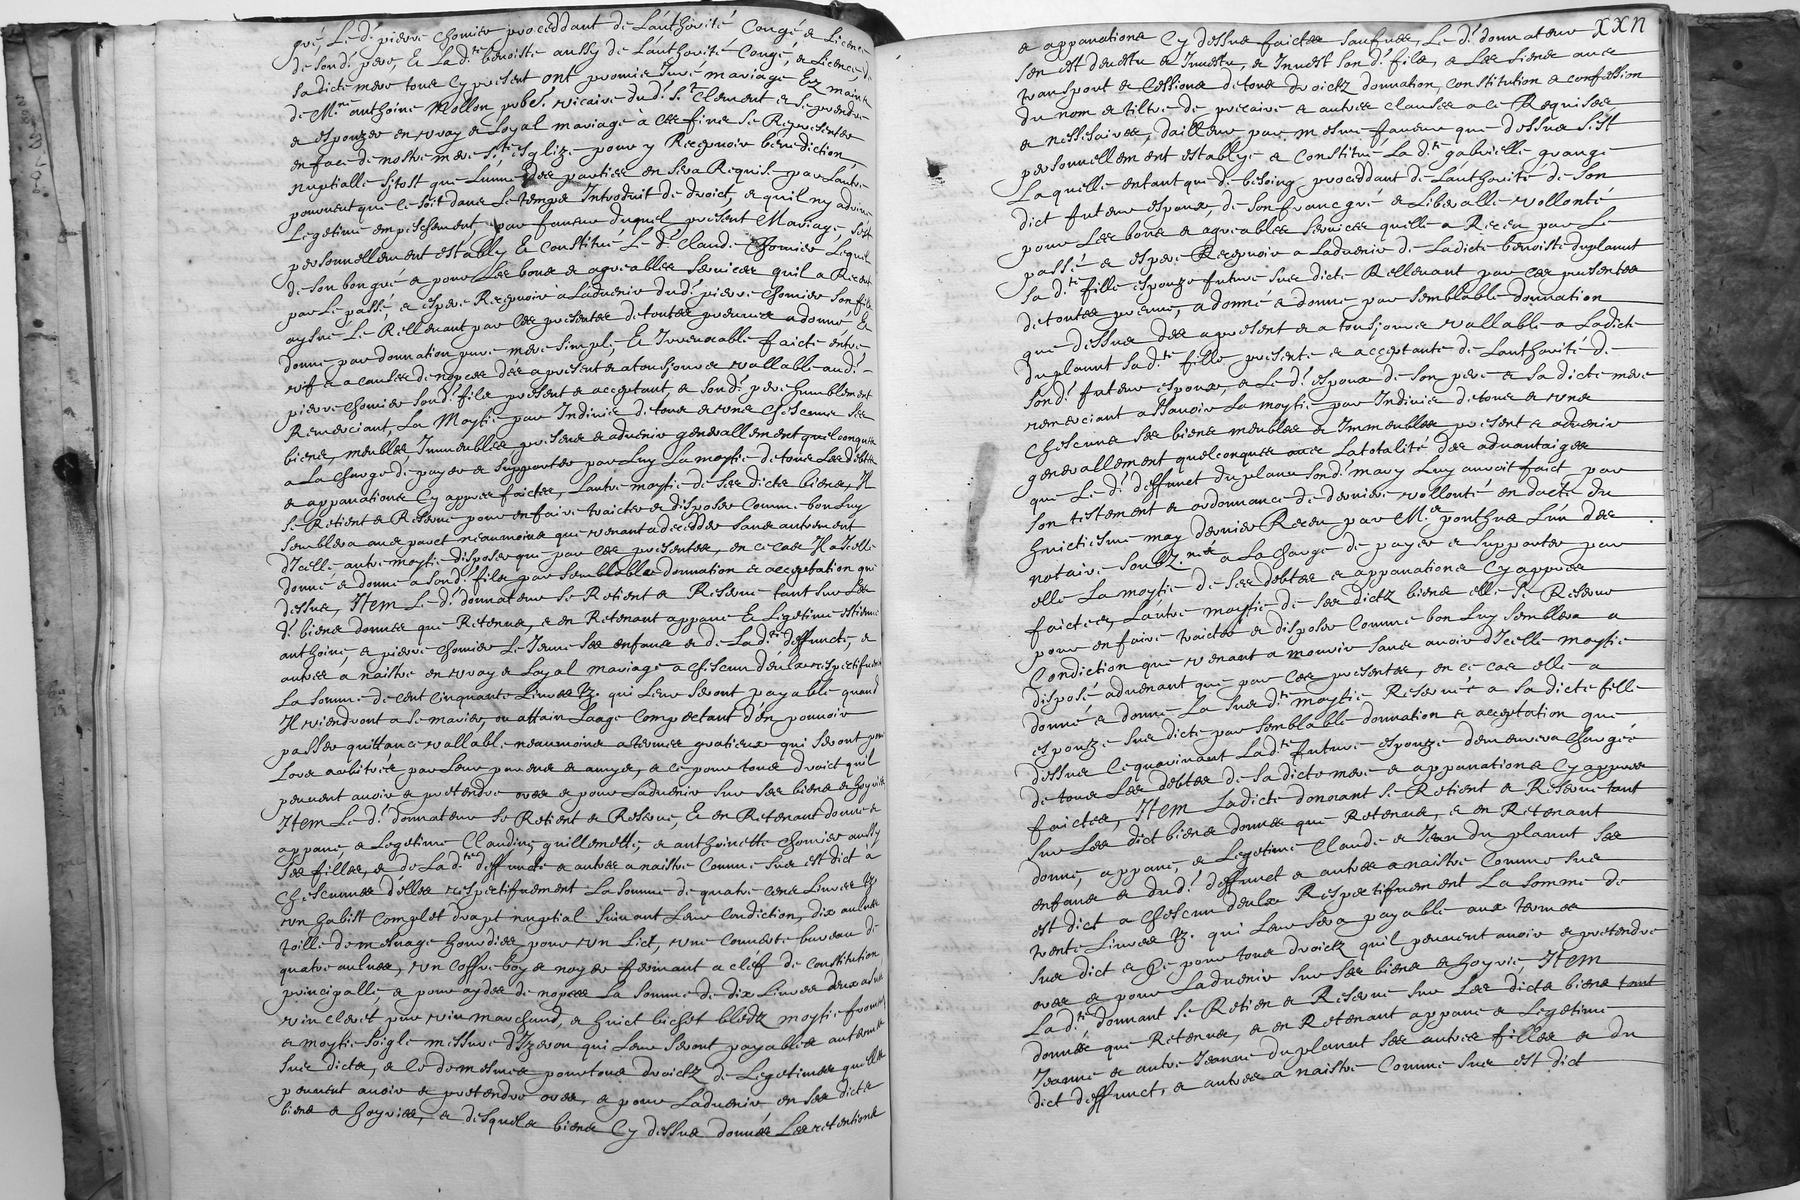 gré, Le d.t pierre Chomier proceddant de Lauthorité Congé & Licence
de son d.t pere, Et La d.te benoiste aussy de Lauthorité Congé, & Licence, de
sa dicte mere tous Cy present ont promis Juré mariage Ez mains
de M.re anthoine Mollon pbre vicaire dud.t S.t Clement & se prendre
& espouzer en vray & Loyal mariage a ces fins se Representer
en face de nostre mere S.te esglize pour y Recepvoir benediction
nuptialle sitost que Lunne des parties en sera Requise par Lautre
pourveu que ce soit dans Le temps Introduit de droict, & quil ny advine
Legetime empeschement, par faveur duquel present Mariage, sest
personnellement estably Et Constitué Le d.t Claude Chomier Lequel
de son bon gré & pour Les bons & agreables services quil a Receu
par Le passé, & espere Recepvoir a Ladvenir dud.t pierre Chomier son filz
aysné Le Rellevant par ces presentes de toutes preuves a donné Et
donne par donnation pure mere simple, Et Irrevocable faicte entre
vifz & a cause de nopces des a present & a tousjours vallable aud.t
pierre Chomier sond.t filz present & acceptant, & sond.t pere humblement
Remerciant, La Moytie par Indivis de tous & uns Chescuns ses
biens, meubles Immeubles presens & advenir generallement quelconques
a La charge de payer & supporter par Luy La moytie de tous Les debtes
& appanations Cy appres faictes, Lautre moytie de ses dicts biens, Il
se Retient & Reserve pour en faire traicter & disposer Comme bon Luy
semblera avec pacte neaumoins que venant a decedder sans autrement
dicelle autre moytie disposer que par ces presentes, en ce cas Il a Icelle
donné & donne a sond.t filz par semblable donnation & acceptation que
dessus, Item Le d.t donnateur se Retient & Reserve tant sur Les
d.t biens donnés que Retenus, & en Retenant appane Et Legetime estienne
anthoine, & pierre Chomier Le Jeune ses enfans & de La d.te deffuncte, &
autres a naistre en vray & Loyal mariage a chescun deulx respectifvement
La somme de cent Cinquante Livres tz. qui Leur seront payable quand
Ilz viendront a se marier, ou attain Laage Compectant den pouvoir
passer quittance vallable neaumoins a termes gratieux qui seront pour
Lors arbitrés par Leur parens & amys, & ce pour tous droict quil
peuvent avoir & pretendre ores & pour Ladvenir sur ses biens & hoyrie
Item Le d.t donnateur se Retient & Reserve, Et en Retenant donne &
appane & Legetime Claudine, guillemette, & anthoinette Chomier aussy
ses filles, & de Lad.te deffuncte & autres a naistre Comme sus est dict a
Chescunes delles respectifvement La somme de quatre cens Livres tz
un habist Complet drapt nuptial suivant Leur Condiction, dix aulnes
toille de mesnage pour un Lict, une couverte bureau de
quatre aulnes, un Coffre boys noyer fermant a clef de Constitution
principalle, & pour aydes de nopces La somme de dix Livres deux asnées
vin cleret pur vin marchand, & huict bichet bledz moytie froment
& moytie soigle messure dyzeron qui Leur seront payables aux termes
sus dicts, & ce de mesmes pour tous droictz de Legetimes quelles
peuvent avoir & pretendre ores, & pour Ladvenir en ses dicts
biens & hoyries, & desquels biens Cy dessus donnés Les retentions
XXII
& appanations Cy dessus faictes saufves, Le d.t donnateur
sen est devestu & Investu, & Investi son d.t filz, & Les siens avec
transport & Cessions de tous droictz donnation, constitution & confession
du nom & tiltre de precaire & autres clauses a ce Requises
& nessesaires, dailleurs par mesme faveur que dessus sest
personnellement establye & Constitué La d.te gabrielle grange
La quelle en tant que de besoing, proceddant de Lauthorité de son
dict futeur espoux, de son franc gré & Liberalle vollonté
pour Les bons & agreables services quelle a Receu par Le
passé & espere Recepvoir a Ladvenir de Ladicte benoiste duplanut
sa d.te fille espouze future sus dicte Rellevant par ces presentes
de toutes preuve, a donné & donne par semblable donnation
que dessus des a present & a tousjours vallable a Ladicte
duplanut sa d.te fille presente & acceptante de Lauthorité de
sond.t futeur espoux, & Le d.t espoux de son pere & sa dicte mere
remerciant ascavoir La moytie par Indivis de tous & uns
Chescuns ses biens meubles & Immeubles present & advenir
generallement quelconques avec La totalité des advantaiges
que Le d.t deffunct duplanu sond.t mary Luy auroit faict par
son testement & ordonnance de derniere vollonté en dacte du
huictiesme may dernier Receu par M.e ponthus Lun des
notaire soubz.nés a La charge de payer & supporter par
elle La moytie de ses debtes & appanations Cy appres
faictes, Lautre moytie de ses dictz biens elle se Reserve
pour en faire traicter & disposer Comme bon Luy semblera a
Condiction que venant a mourir sans avoir dicelle moytie
disposé, advenant que par ces presentes, en ce cas elle a
donné & donne La sus d.te moytie Reservée a sa dicte fille
espouze sus dicte par semblable donnation & acceptation que
dessus Ce quavinant Lad.te future espouze demeurera chargée
de tous Les debtes de sa dicte mere & appanations Cy appres
faictes, Item Ladicte donnant se Retient & Reserve tant
sur Les dict biens donnés que Retenus, & en Retenant
donne, appane, & Legetime Claude & Jean du planut ses
enfans & dud.t deffunct & autres a naistre Comme sus
est dict a Chescun deulx Respectifvement La somme de
trente Livres tz. qui Leur sera payable aux termes
sus dict & Ce pour tous droictz quil peuvent avoir & pretendre
ores & pour Ladvenir sur ses biens & hoyrie, Item
La d.te donnant se Retien & Reserve sur Les dicts biens tant
donnés que Retenus, & en Retenant appane & Legetime
Jeanne & autre Jeanne duplanut ses autres filles & du
dict deffunct, & autres a naistre Comme sus est dict